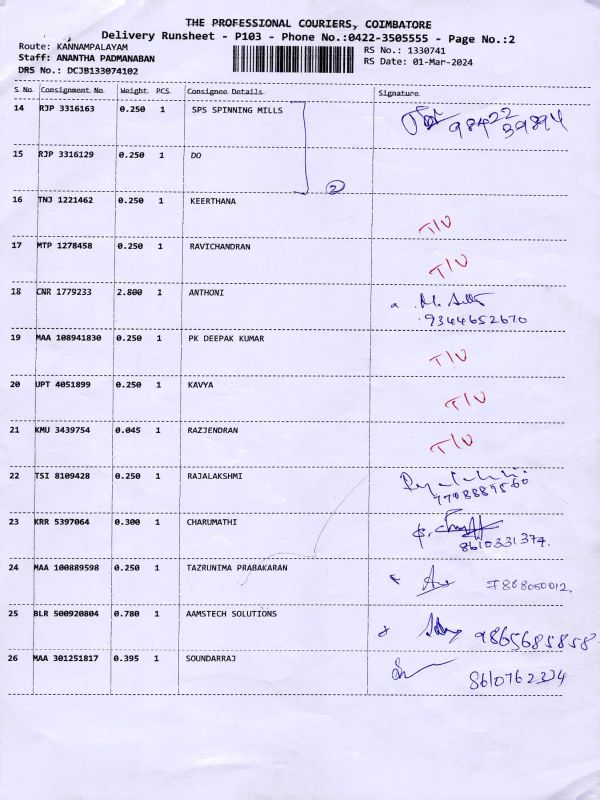 THE PROFESSIONAL COURIERS, COIMBATORE
Delivery Runsheet - P103 - Phone No.:0422-3505555 - Page No.:2
Route: KANNAMPALAYAM RS No.: 1330741
Staff: ANANTHA PADMANABAN RS Date: 01-Mar-2024
DRS No.: DCJB133074102
S No Consignment No Weight PCS Consignee Details Signature
14 RJP 3316163 0.250 1 SPS SPINNING MILLS 98422
39894
15 RJP 3316129 0.250 1 DO
2
16 TNJ 1221462 0.250 1 KEERTHANA
T/U
17 MTP 1278458 0.250 1 RAVICHANDRAN
T/U
18 CNR 1779233 2.800 1 ANTHONI
9344652670
19 MAA 108941830 0.250 1 PK DEEPAK KUMAR
T/U
20 UPT 4051899 0.250 1 KAVYA
T/U
21 KMU 3439754 0.045 1 RAZJENDRAN
T/U
22 TSI 8109428 0.250 1 RAJALAKSHMI
23 KRR 5397064 0.300 1 CHARUMATHI
8610331374.
24 MAA 100889598 0.250 1 TAZRUNIMA PRABAKARAN
25 BLR 500920804 0.780 1 AAMSTECH SOLUTIONS
9865685858
26 MAA 301251817 0.395 1 SOUNDARRAJ
8610762334